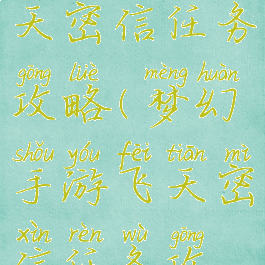 天密信任务
gōng lüè mèng huàn
攻略(梦幻
shǒu yóu fēi tiān mì
手游飞天密
xìn rèn wù gōng
信任务攻